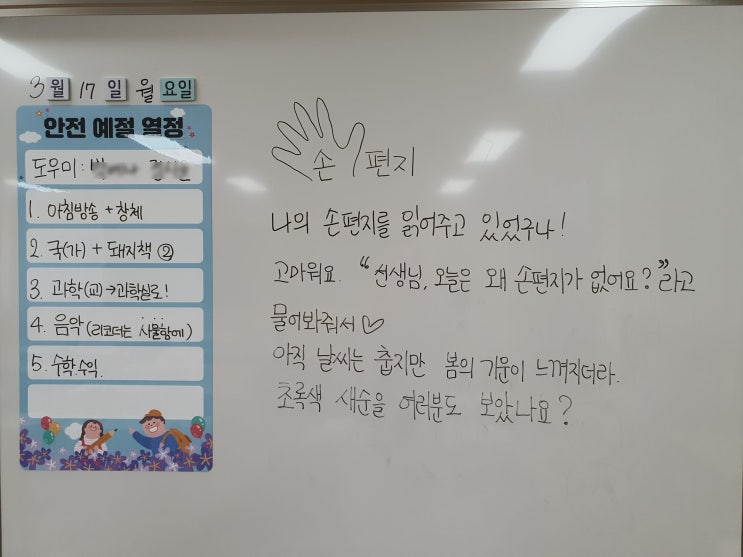 3월 17일 월요일
안전 예절 열정
도우미:
1. 아침방송 + 창체
2. 국(가) + 돼지책 ②
3. 과학(교)→과학실로!
4. 음악 (리코더는 사물함에)
5. 수학.수익.
손 편지
나의 손편지를 읽어주고 있었구나!
고마워요. "선생님, 오늘은 왜 손편지가 없어요?"라고
물어봐줘서♡
아직 날씨는 춥지만 봄의 기운이 느껴지더라.
초록색 새순을 여러분도 보았나요?